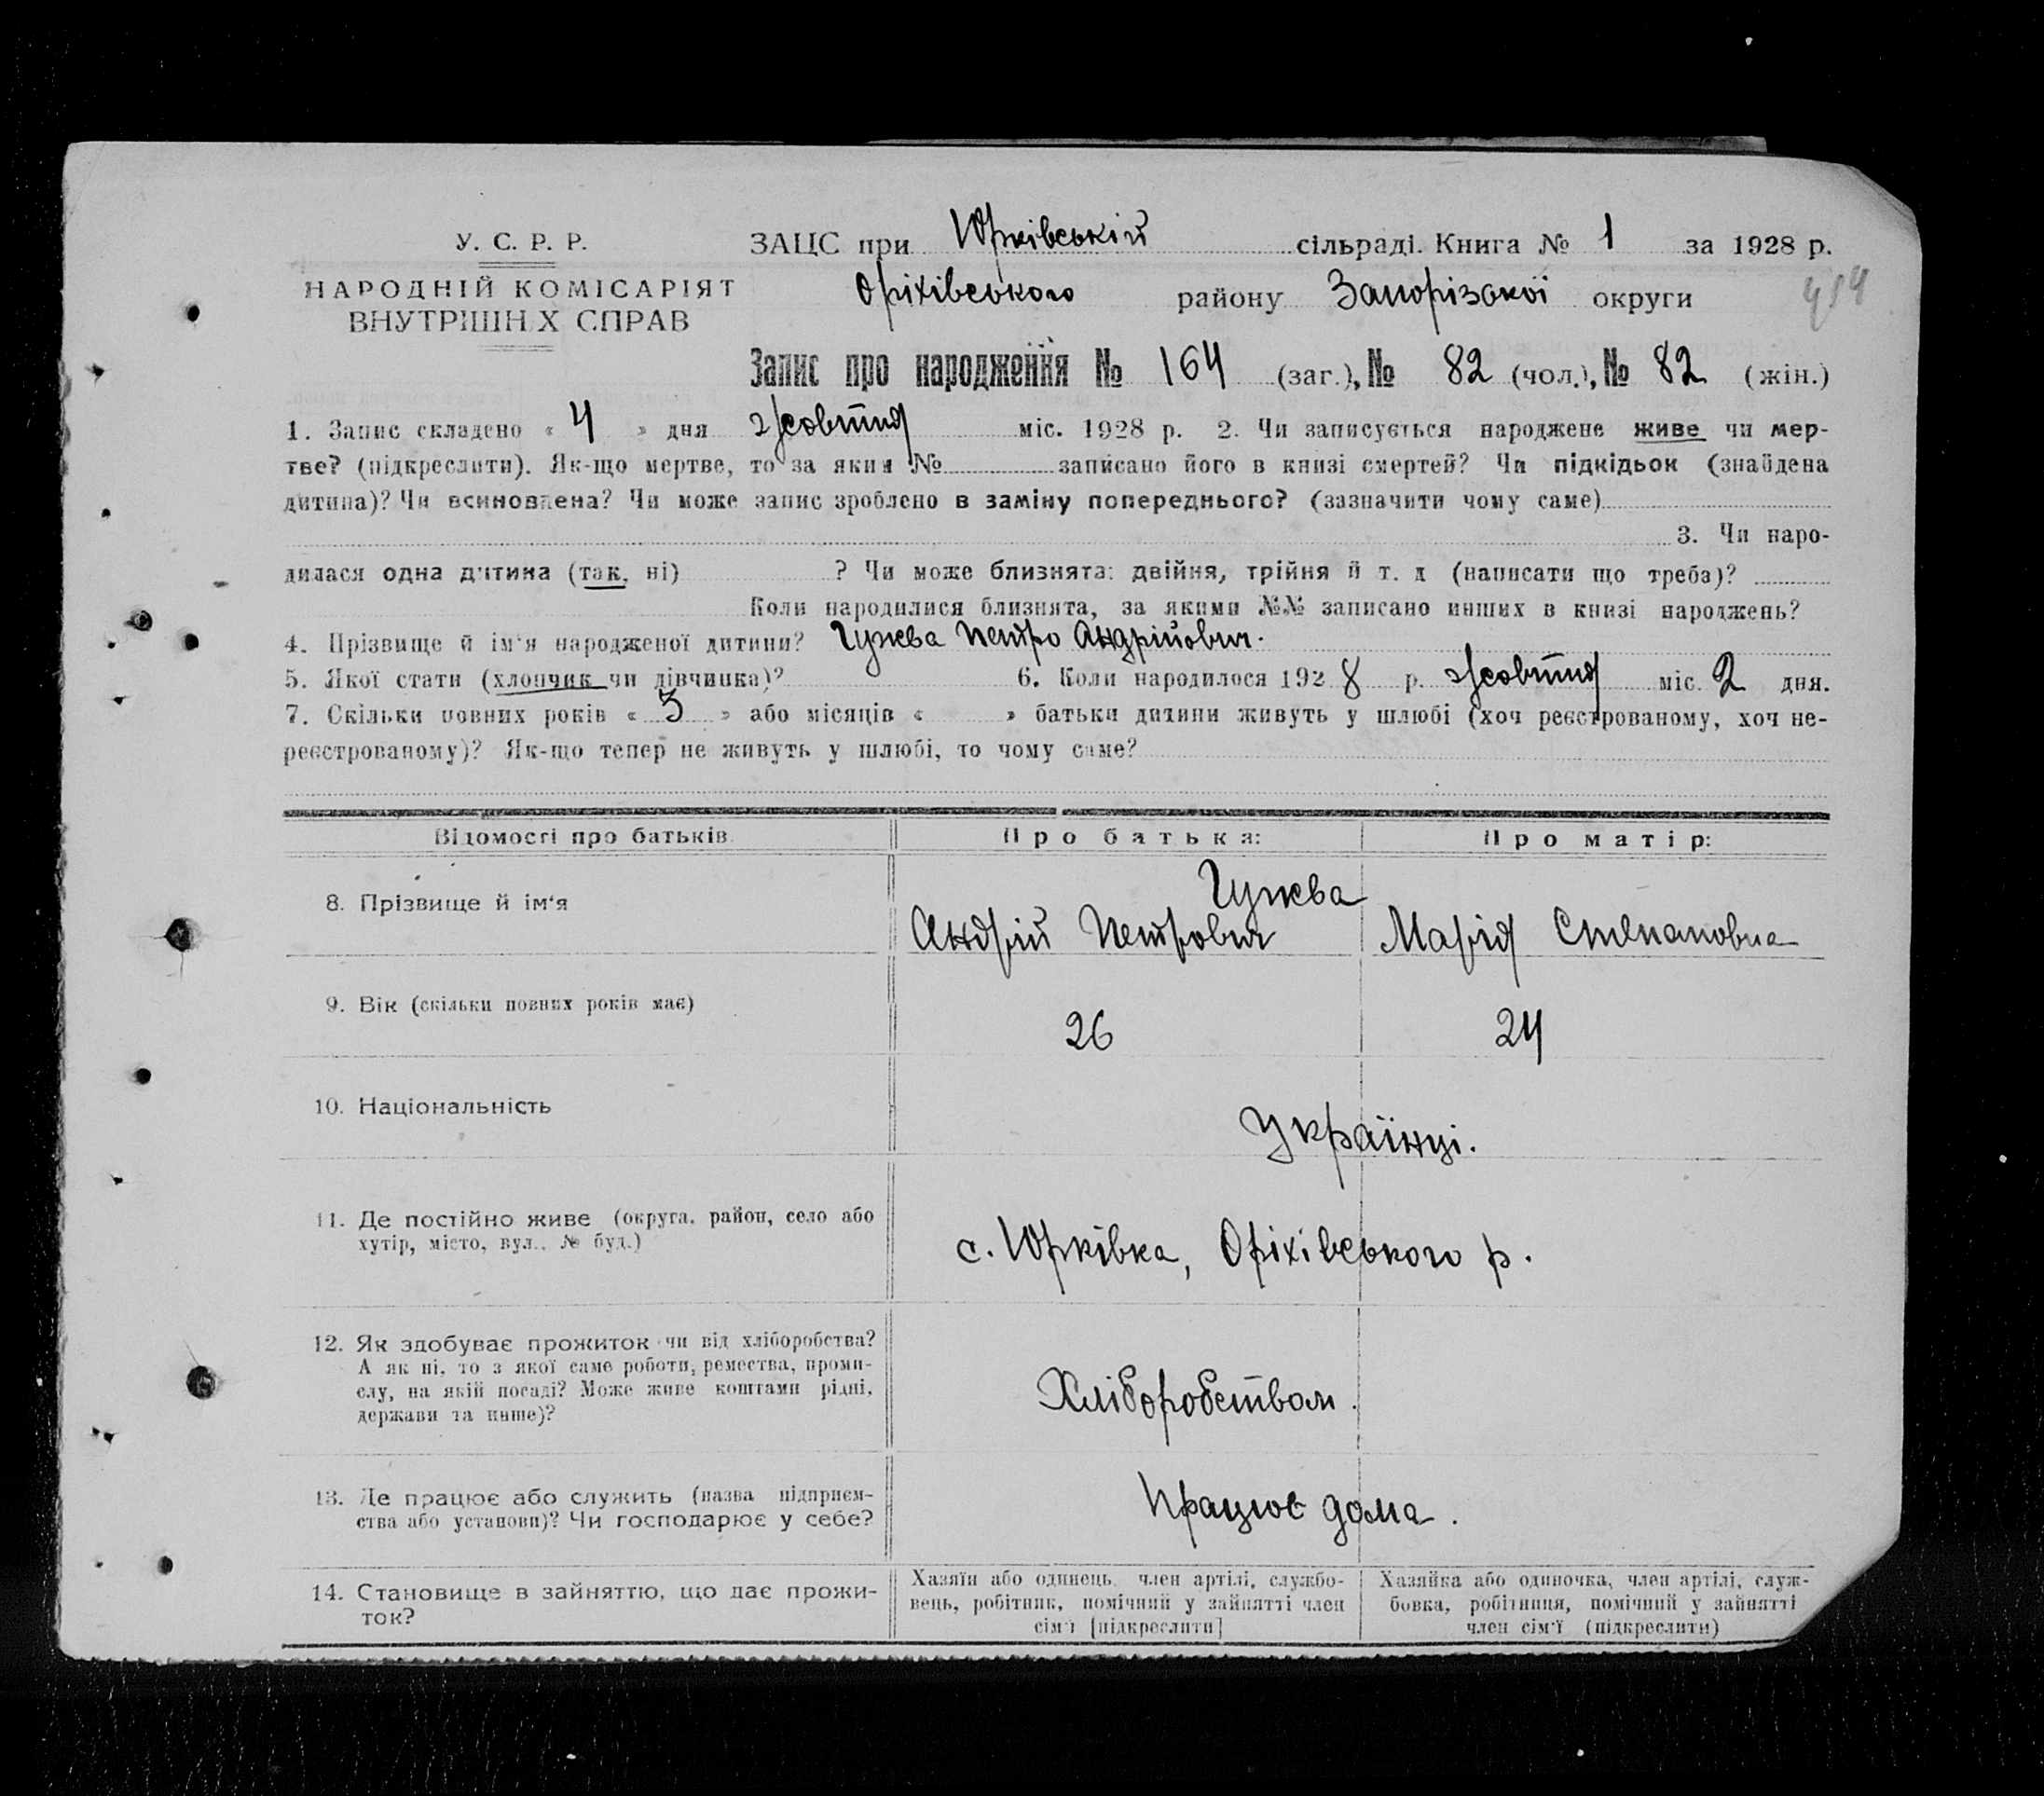 У. С. Р. Р.
НАРОДНІЙ КОМІСАРІЯТ
ВНУТРІШН Х СПРАВ
ЗАЦС при Юрківській сільраді. Книга № 1 за 1928 р.
Оріхівського району Запорізької округи
Запис про народження № 164 (заг.), № 82 (чол.), № 82 (жін.)
1. Запис складено « 4 » дня жовтня міс. 1928 р. 2. Чи записується народжене живе чи мер-
тве? (підкреслити). Як-що мертве, то за яким № записано його в книзі смертей? Чи підкідьок (знайдена
дитина)? Чи всиновлена? Чи може запис зроблено в заміну попереднього? (зазначити чому саме)
3. Чи наро-
дилася одна дитина (так, ні) ? Чи може близнята: двійня, трійня й т. д (написати що треба)?
Коли народилися близнята, за якими №№ записано инших в книзі народжень?
4. Прізвище й ім'я народженої дитини? Гужва Петро Андрійович.
5. Якої стати (хлопчик чи дівчинка)? 6. Коли народилося 1928 р. жовтня міс. 2 дня.
7. Скільки повних років « 5 » або місяців « » батьки дитини живуть у шлюбі (хоч реєстрованому, хоч не-
реєстрованому)? Як-що тепер не живуть у шлюбі, то чому саме?
Відомості про батьків. Про батька: Про матір:
8. Прізвище й ім'я Гужва
Андрій Петрович Марія Степановна
9. Вік (скільки повних років має) 26 24
10. Національність Українці.
11. Де постійно живе (округа, район, село або
хутір, місто, вул., № буд.) с. Юрківка, Оріхівського р.
12. Як здобуває прожиток чи від хліборобства?
А як ні, то з якої саме роботи, ремества, проми-
слу, на якій посаді? Може живе коштами рідні,
держави та инше)? Хліборобством.
13. Де працює або служить (назва підприєм-
ства або установи)? Чи господарює у себе? Працює дома.
14. Становище в зайняттю, що дає прожи-
ток?
Хазяїн або одинець, член артілі, службо-
вець, робітник, помічний у зайнятті член
сім'ї [підкреслити]
Хазяйка або одиночка, член артілі, служ-
бовка, робітниця, помічний у зайнятті
член сім'ї (підкреслити)